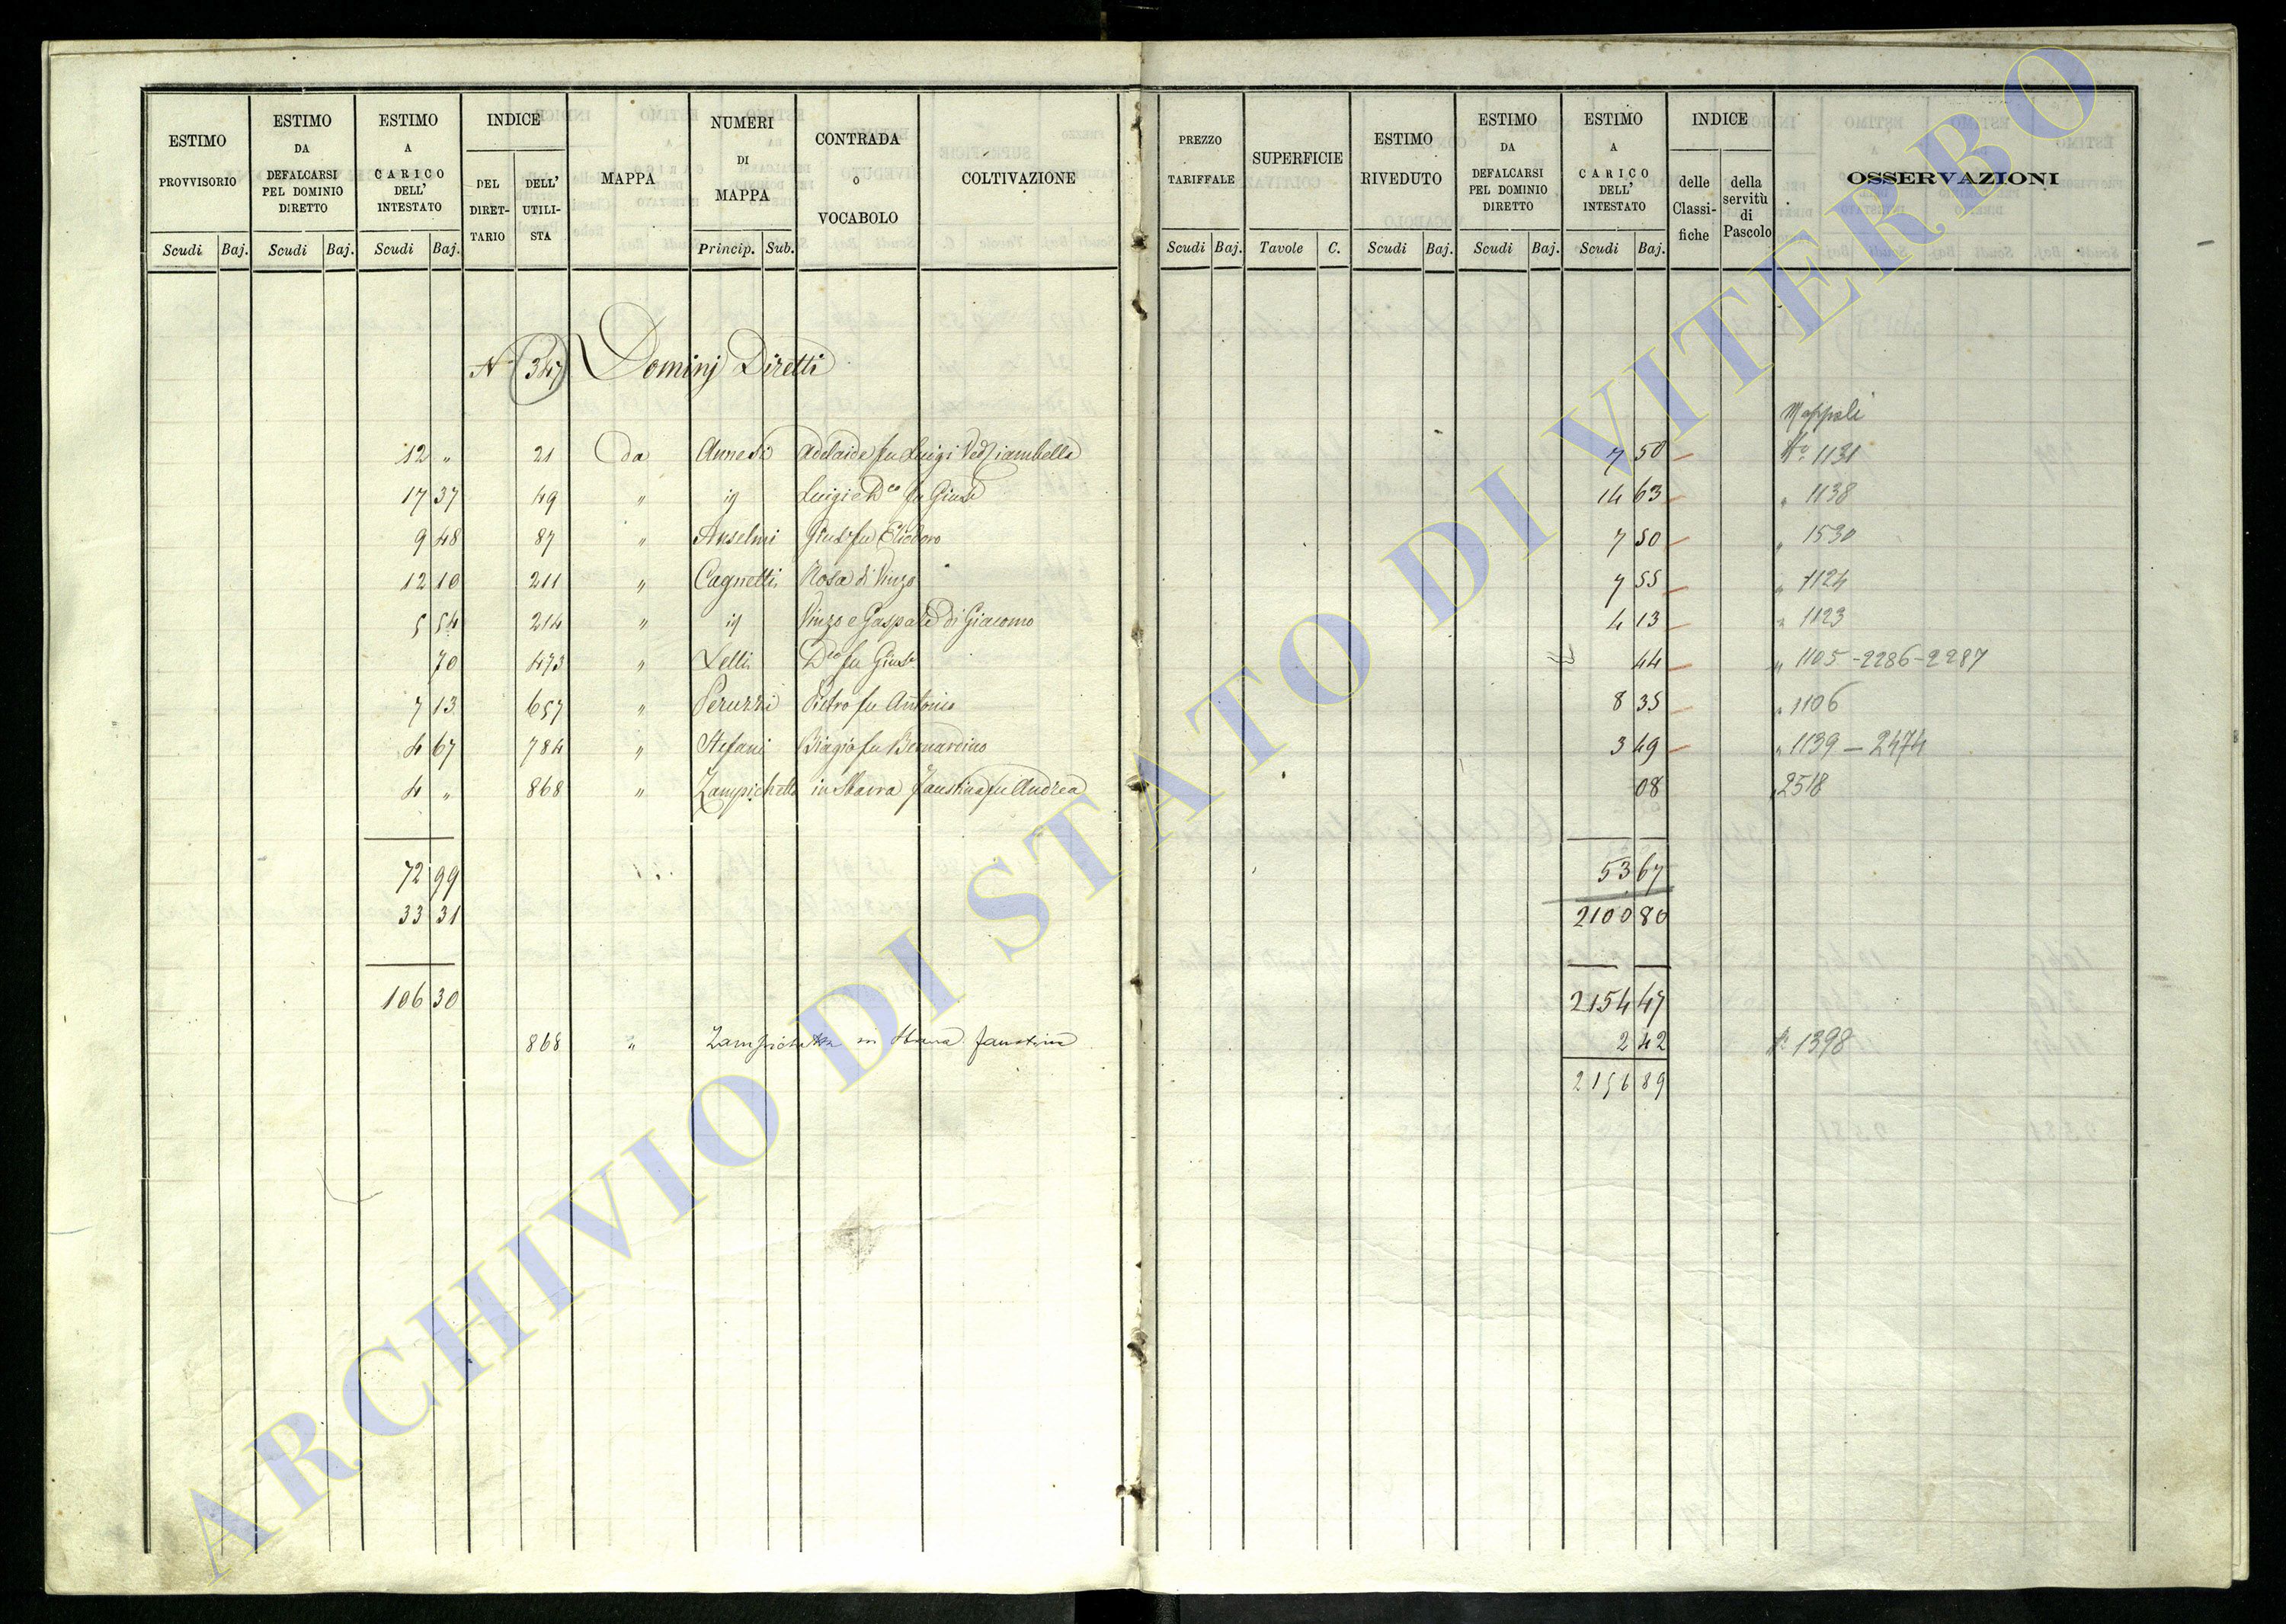 ESTIMO PROVVISORIO Scudi Baj.
ESTIMO DA DEFALCARSI PEL DOMINIO DIRETTO Scudi Baj.
ESTIMO A CARICO DELL' INTESTATO Scudi Baj.
INDICE DEL DIRET-TARIO DELL' UTILI-STA
MAPPA
NUMERI DI MAPPA Princip. Sub.
CONTRADA O VOCABOLO
COLTIVAZIONE
PREZZO TARIFFALE Scudi Baj.
SUPERFICIE Tavole C.
ESTIMO RIVEDUTO Scudi Baj.
ESTIMO DA DEFALCARSI PEL DOMINIO DIRETTO Scudi Baj.
ESTIMO A CARICO DELL' INTESTATO Scudi Baj.
INDICE delle Classi-fiche della servitù di Pascolo
OSSERVAZIONI
N 347 Dominj Diretti
Mappali
12 " 21 da Annesi Adelaide fu Luigi Ved Ciambella 7 50 No 1131
17 37 49 " id Luigi e Dco fu Giuse 14 63 " 1138
9 48 87 " Anselmi Giuse fu Eliodoro 7 50 " 1530
12 10 211 " Cagnetti Rosa di Vinzo 7 55 " 1124
5 54 214 " id Vinzo e Gaspare di Giacomo 4 13 " 1123
70 473 " Lelli Dco fu Giuse 44 " 1105-2286-2287
7 13 657 " Peruzzi Pietro fu Antonio 8 35 " 1106
4 67 784 " Stefani Biagio fu Bernardino 3 49 " 1139 - 2474
4 " 868 " Zampichetti in Sbarra Faustina fu Andrea 08 " 2518
72 99 53 67
33 31 2100 80
106 30 2154 47
868 " Zampichetti in Sbarra Faustina 2 42 No 1398
2156 89
ARCHIVIO DI STATO DI VITERBO